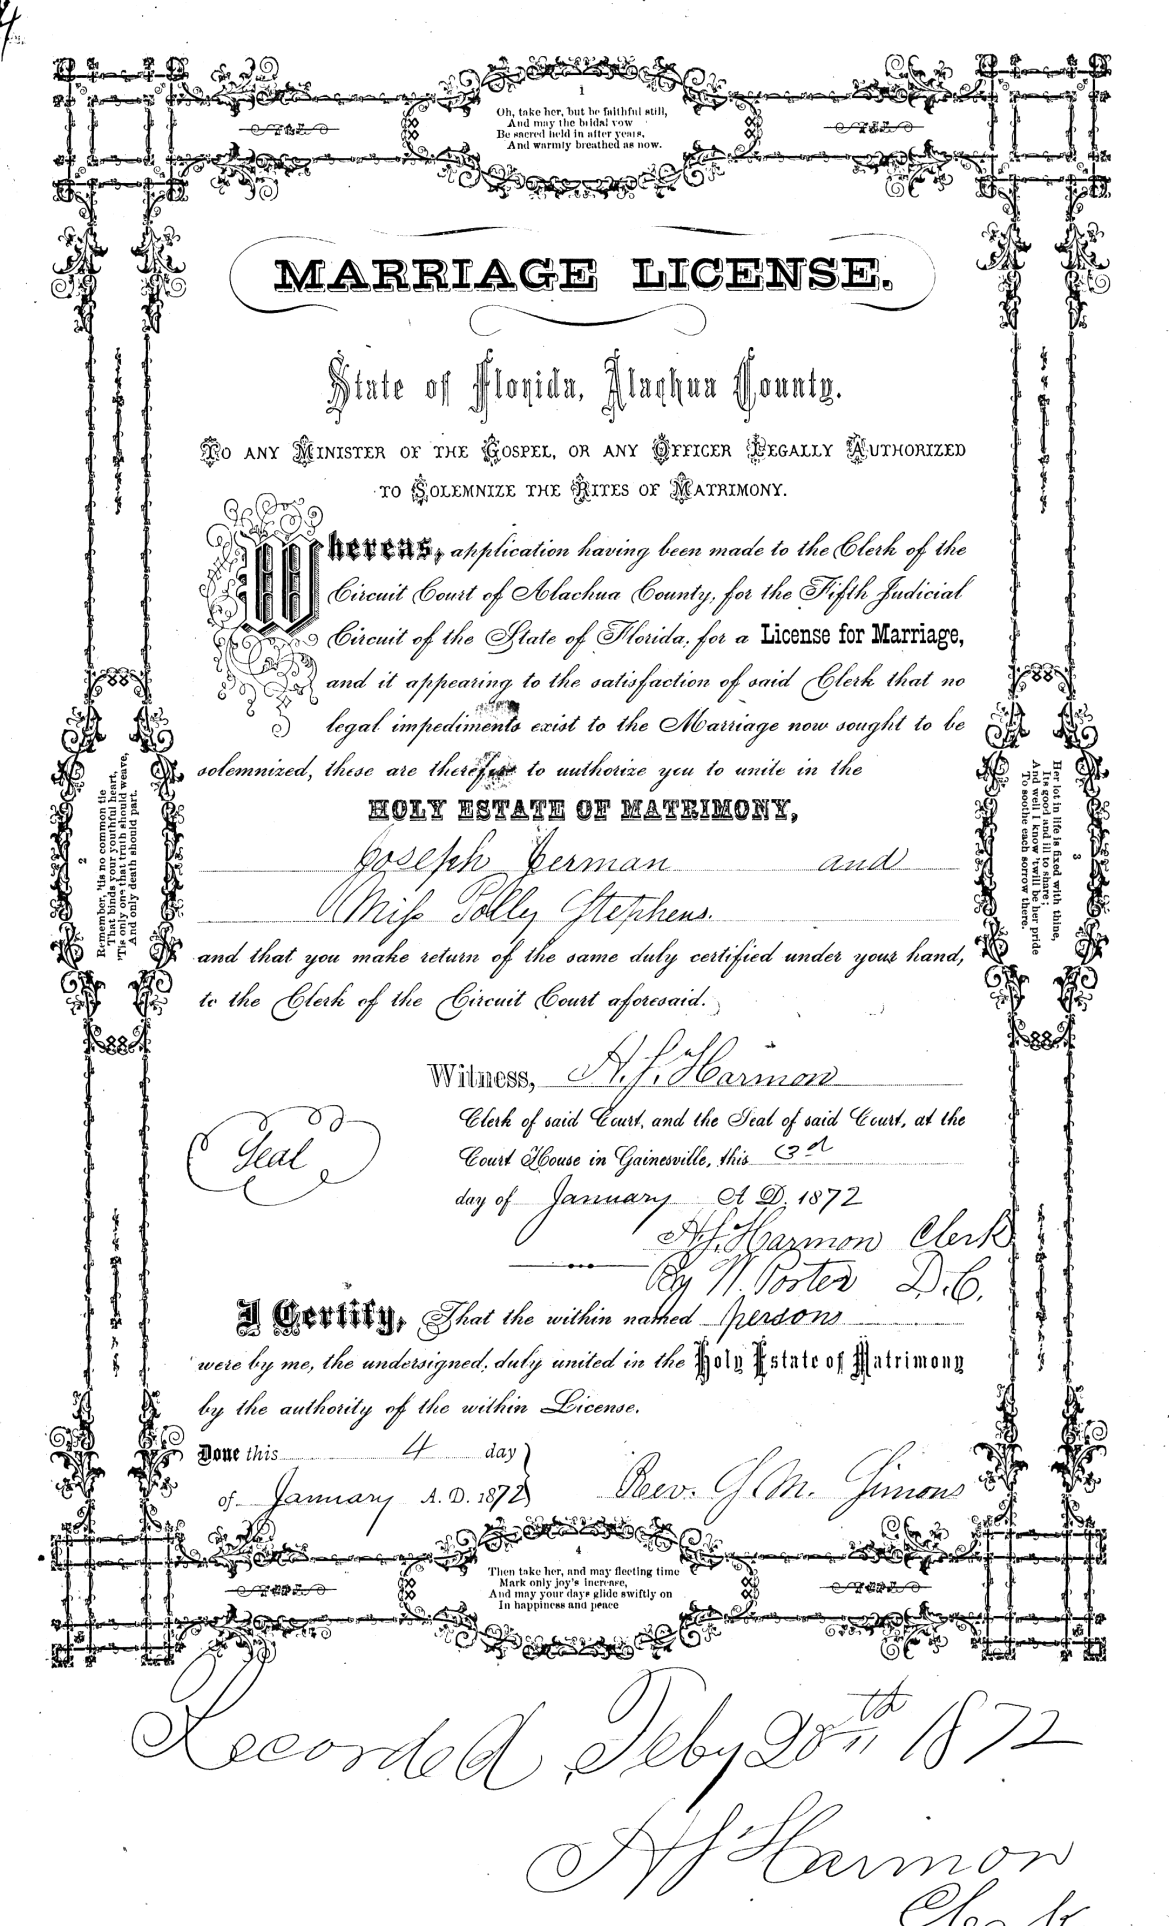 4
1
Oh, take her, but be faithful still,
And may the bidal vow
Be sacred held in after years,
And warmly breathed as now.
MARRIAGE LICENSE.
State of Florida, Alachua County.
TO ANY MINISTER OF THE GOSPEL, OR ANY OFFICER LEGALLY AUTHORIZED
TO SOLEMNIZE THE RITES OF MATRIMONY.
Whereas, application having been made to the Clerk of the
Circuit Court of Alachua County, for the Fifth Judicial
Circuit of the State of Florida, for a License for Marriage,
and it appearing to the satisfaction of said Clerk that no
legal impediments exist to the Marriage now sought to be
solemnized, these are therefore to authorize you to unite in the
HOLY ESTATE OF MATRIMONY,
Joseph Jerman and
Miss Polly Stephens.
and that you make return of the same duly certified under your hand,
to the Clerk of the Circuit Court aforesaid.
2
Remember, 'tis no common tie
That binds your youthful heart,
'Tis only one that truth should weave,
And only death should part.
3
Her lot in life is fixed with thine,
Its good and ill to share;
And well I know 'twill be her pride
To soothe each sorrow there.
Witness, H. S. Harmon
Clerk of said Court, and the Seal of said Court, at the
Court House in Gainesville, this 3rd
Seal
day of January A. D. 1872
H. S. Harmon Clerk
By W. Porter D. C.
I Certify, That the within named persons
were by me, the undersigned, duly united in the Holy Estate of Matrimony
by the authority of the within License.
Done this 4 day
of January A. D. 1872
Rev. G. M. Simons
4
Then take her, and may fleeting time
Mark only joy's increase,
And may your days glide swiftly on
In happiness and peace
Recorded Feby 20th 1872
H S Harmon
Clerk